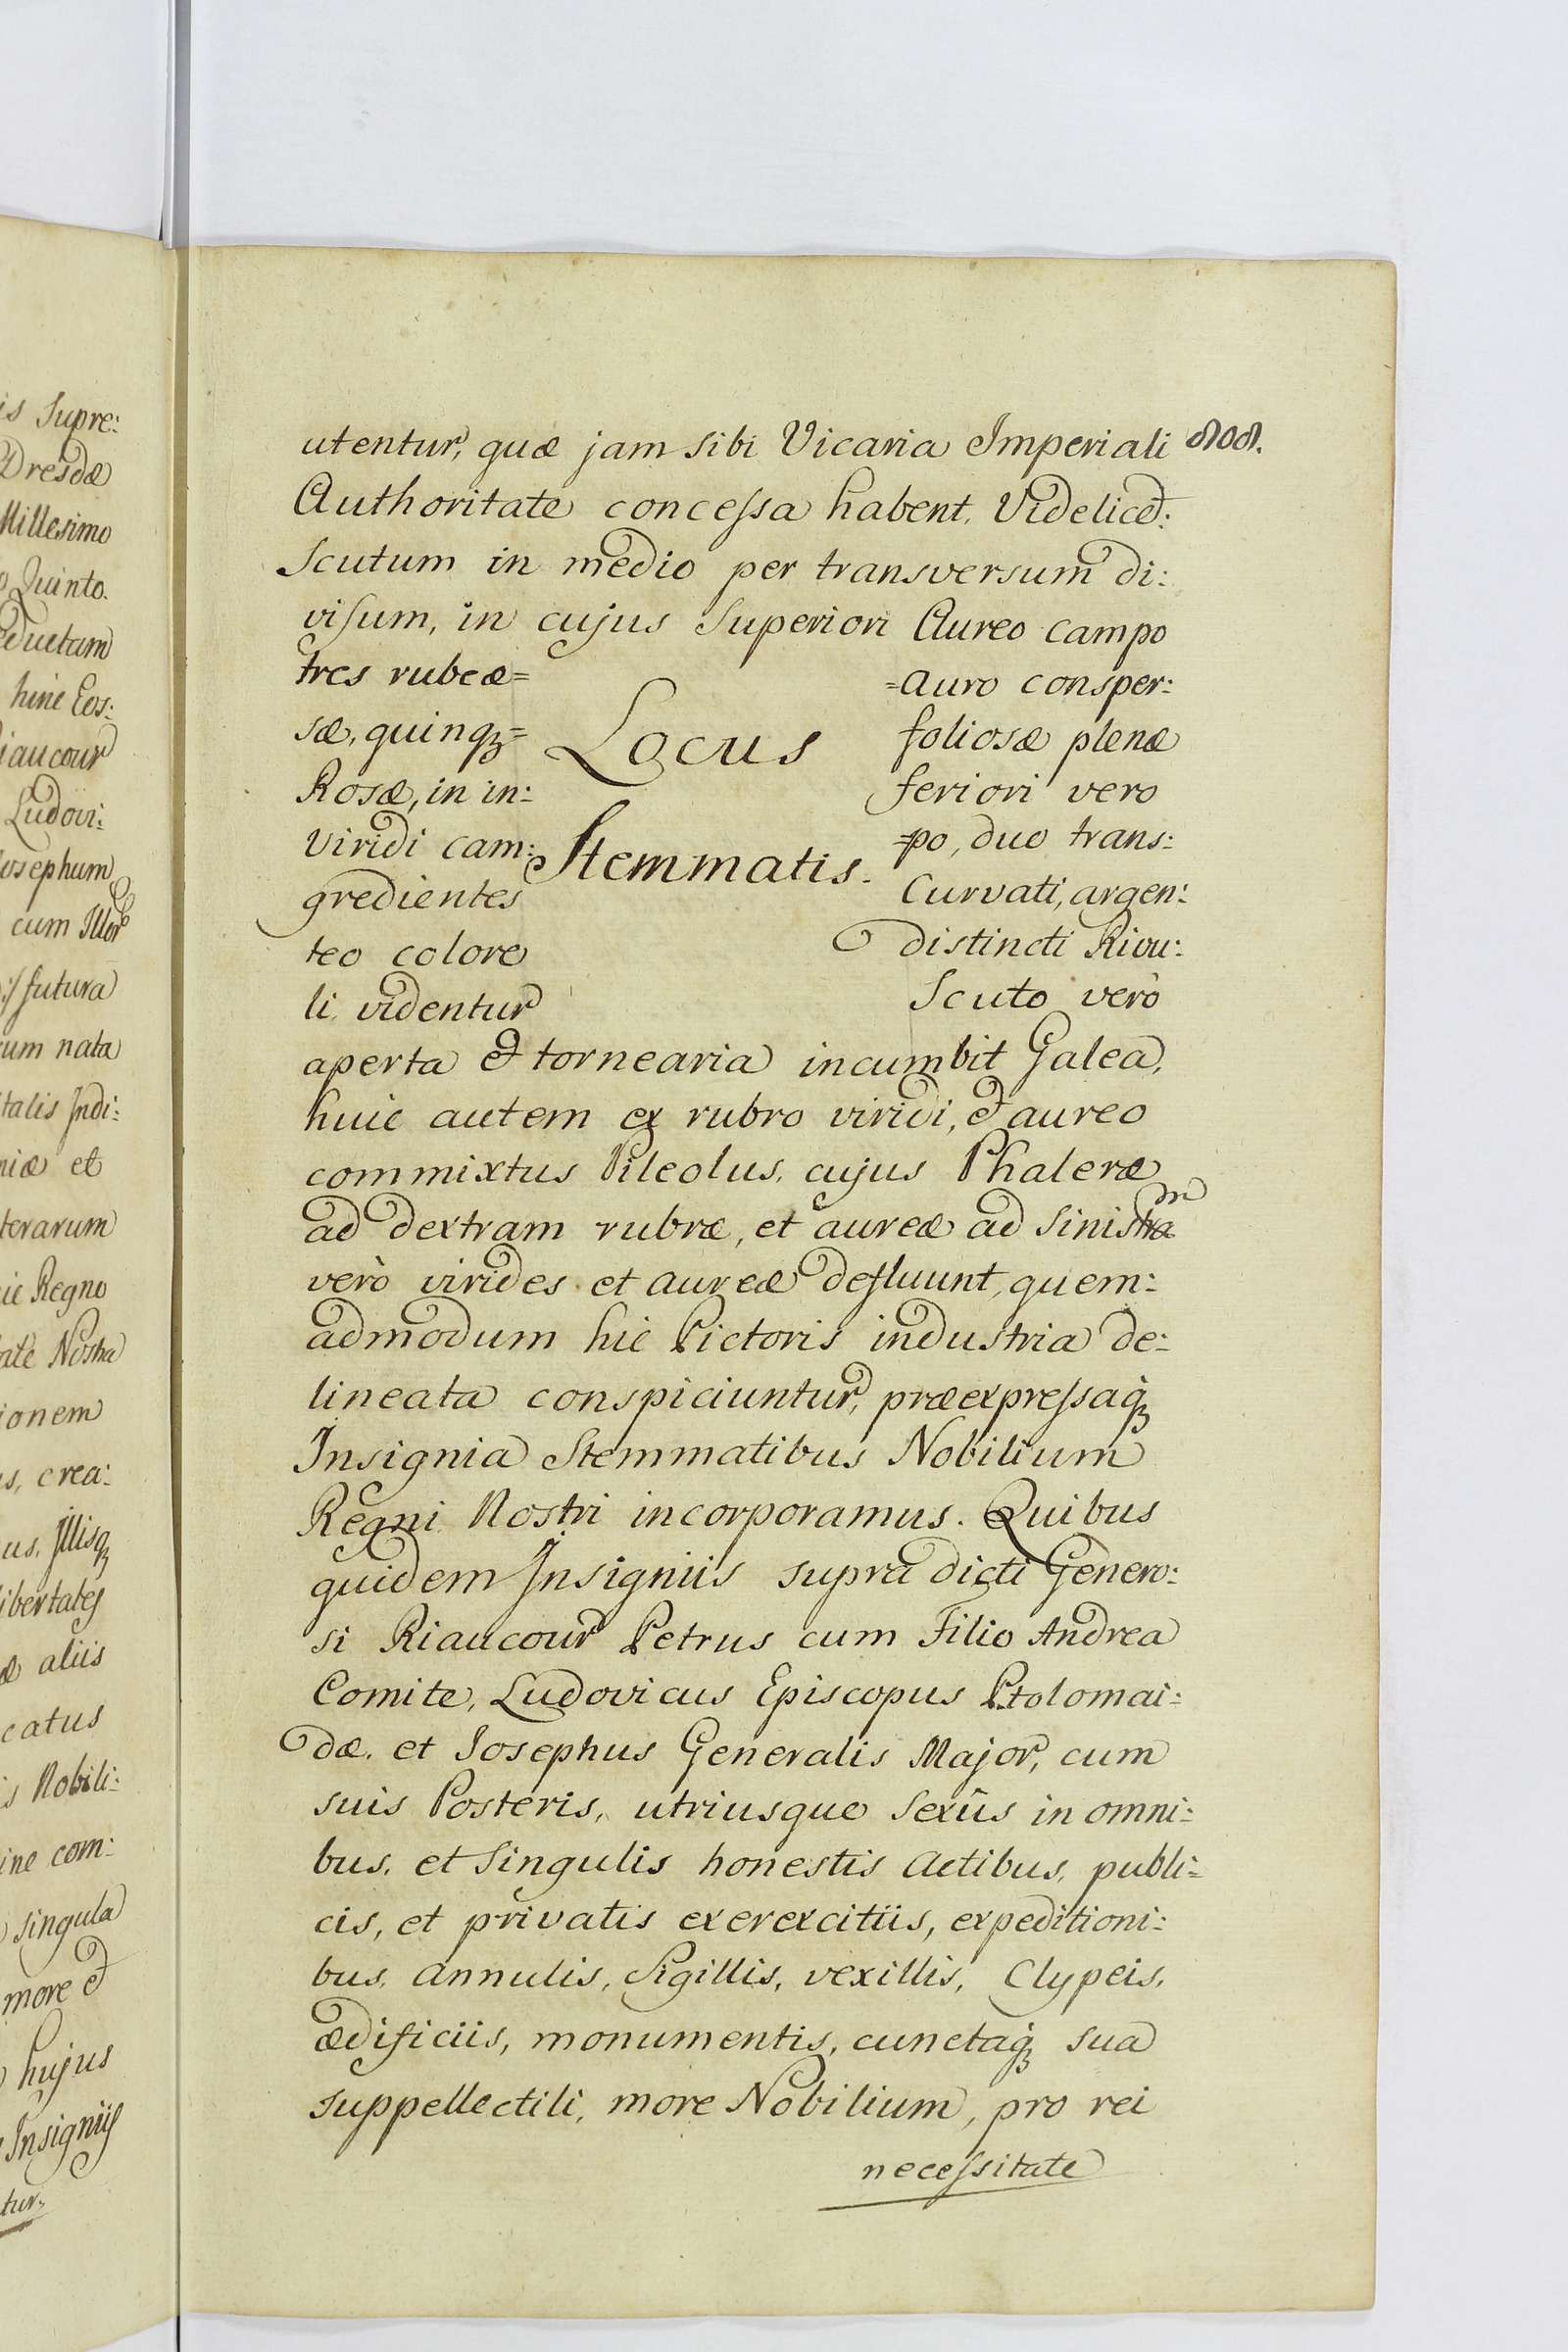 is Supre:
Dresdæ
Millesimo
Quinto.
hinc Eos:
Riaucour
Ludovi:
Josephum
cum Illor
futura
rum nata
talis Indi:
niæ et
terarum
Regno
Nostra
ionem
crea:
us, Illisq
libertates
aliis
catus
is Nobili:
ine com:
singula
more et
hujus
Insigniis
tur,
utentur, quæ jam sibi Vicaria Imperiali 808.
Authoritate concessa habent. Videlicet:
Scutum in medio per transversum di:
visum, in cujus Superiori Aureo campo
tres rubeæ= =auro consper:
sæ, quinq= Locus foliosæ plenæ
Rosæ, in in: feriori vero
Viridi cam: Stemmatis. =po, duo trans:
gredientes Curvati, argen:
teo colore distincti Rivu:
li videntur Scuto verò
aperta et tornearia incumbit Galea,
huic autem ex rubro viridi, et aureo
commixtus Pileolus, cujus Phaleræ
ad dextram rubræ, et aureæ ad sinistram
verò virides et aureæ defluunt, quem:
admodum hic Pictoris industria de:
lineata conspiciuntur, præexpressaq
Insignia Stemmatibus Nobilium
Regni Nostri incorporamus. Quibus
quidem Insigniis supra dicti Genero:
si Riaucour Petrus cum Filio Andrea
Comite, Ludovicus Episcopus Ptolomai:
dæ, et Josephus Generalis Major, cum
suis Posteris, utriusque Sexûs in omni:
bus, et Singulis honestis Actibus, publi=
cis, et privatis exerexcitiis, expeditioni:
bus, Annulis, Sigillis, vexillis, Clypeis,
ædificiis, monumentis, cunctaq sua
suppellectili, more Nobilium, pro rei
necessitate